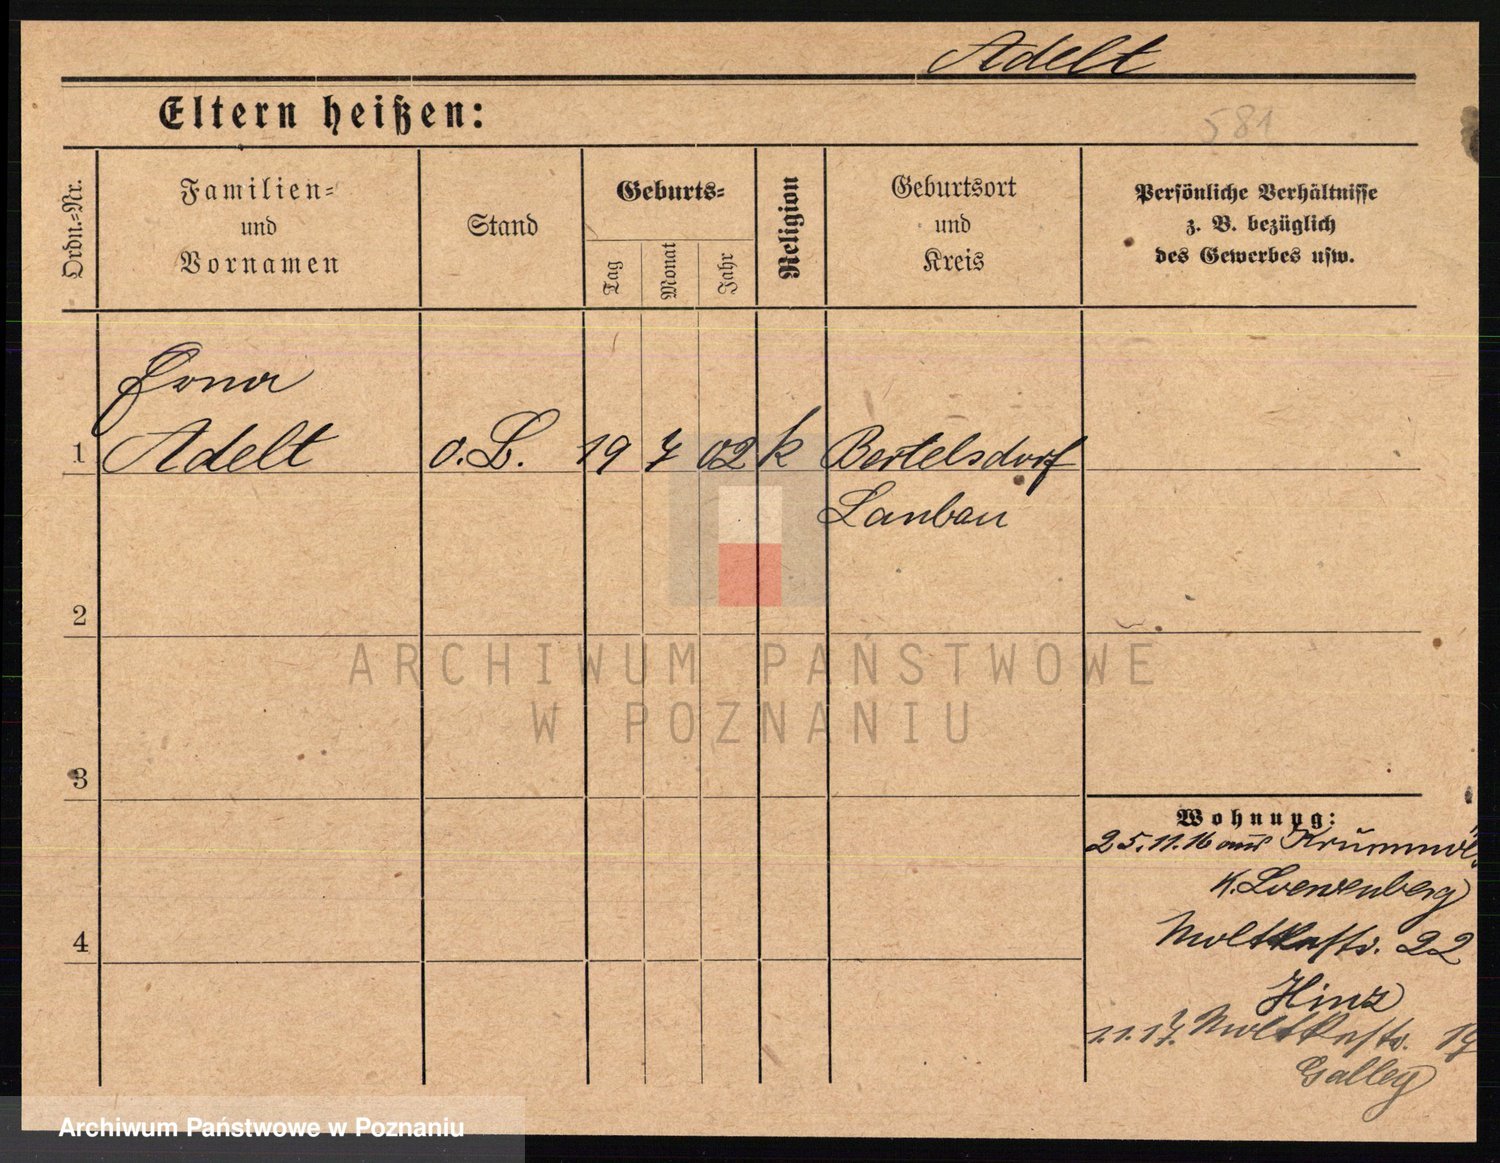 Adelt
Eltern heißen:
581
Ordn.=Nr.
Familien=
und
Vornamen
Stand
Geburts=
Tag
Monat
Jahr
Religion
Geburtsort
und
Kreis
Persönliche Verhältnisse
z. B. bezüglich
des Gewerbes usw.
Erna
1 Adelt o. B. 19 7 02 k Bertelsdorf
Lauban
2
ARCHIWUM PAŃSTWOWE
W POZNANIU
3
Wohnung:
25.11.16 aus
K. Loewenberg
4
Moltkestr. 22
Hinz
1.1.17. Moltkestr.
Galley
Archiwum Państwowe w Poznaniu